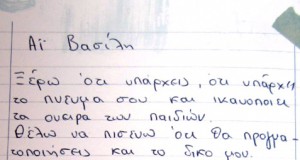 Αϊ Βασίλη
Ξέρω ότι υπάρχεις, ότι υπάρχει
το πνευμα σου και ικανοποιει
τα ονειρα των παιδιών.
Θέλω να πιστευω ότι θα πραγμα
τοποιήσεις και το δικο μου.